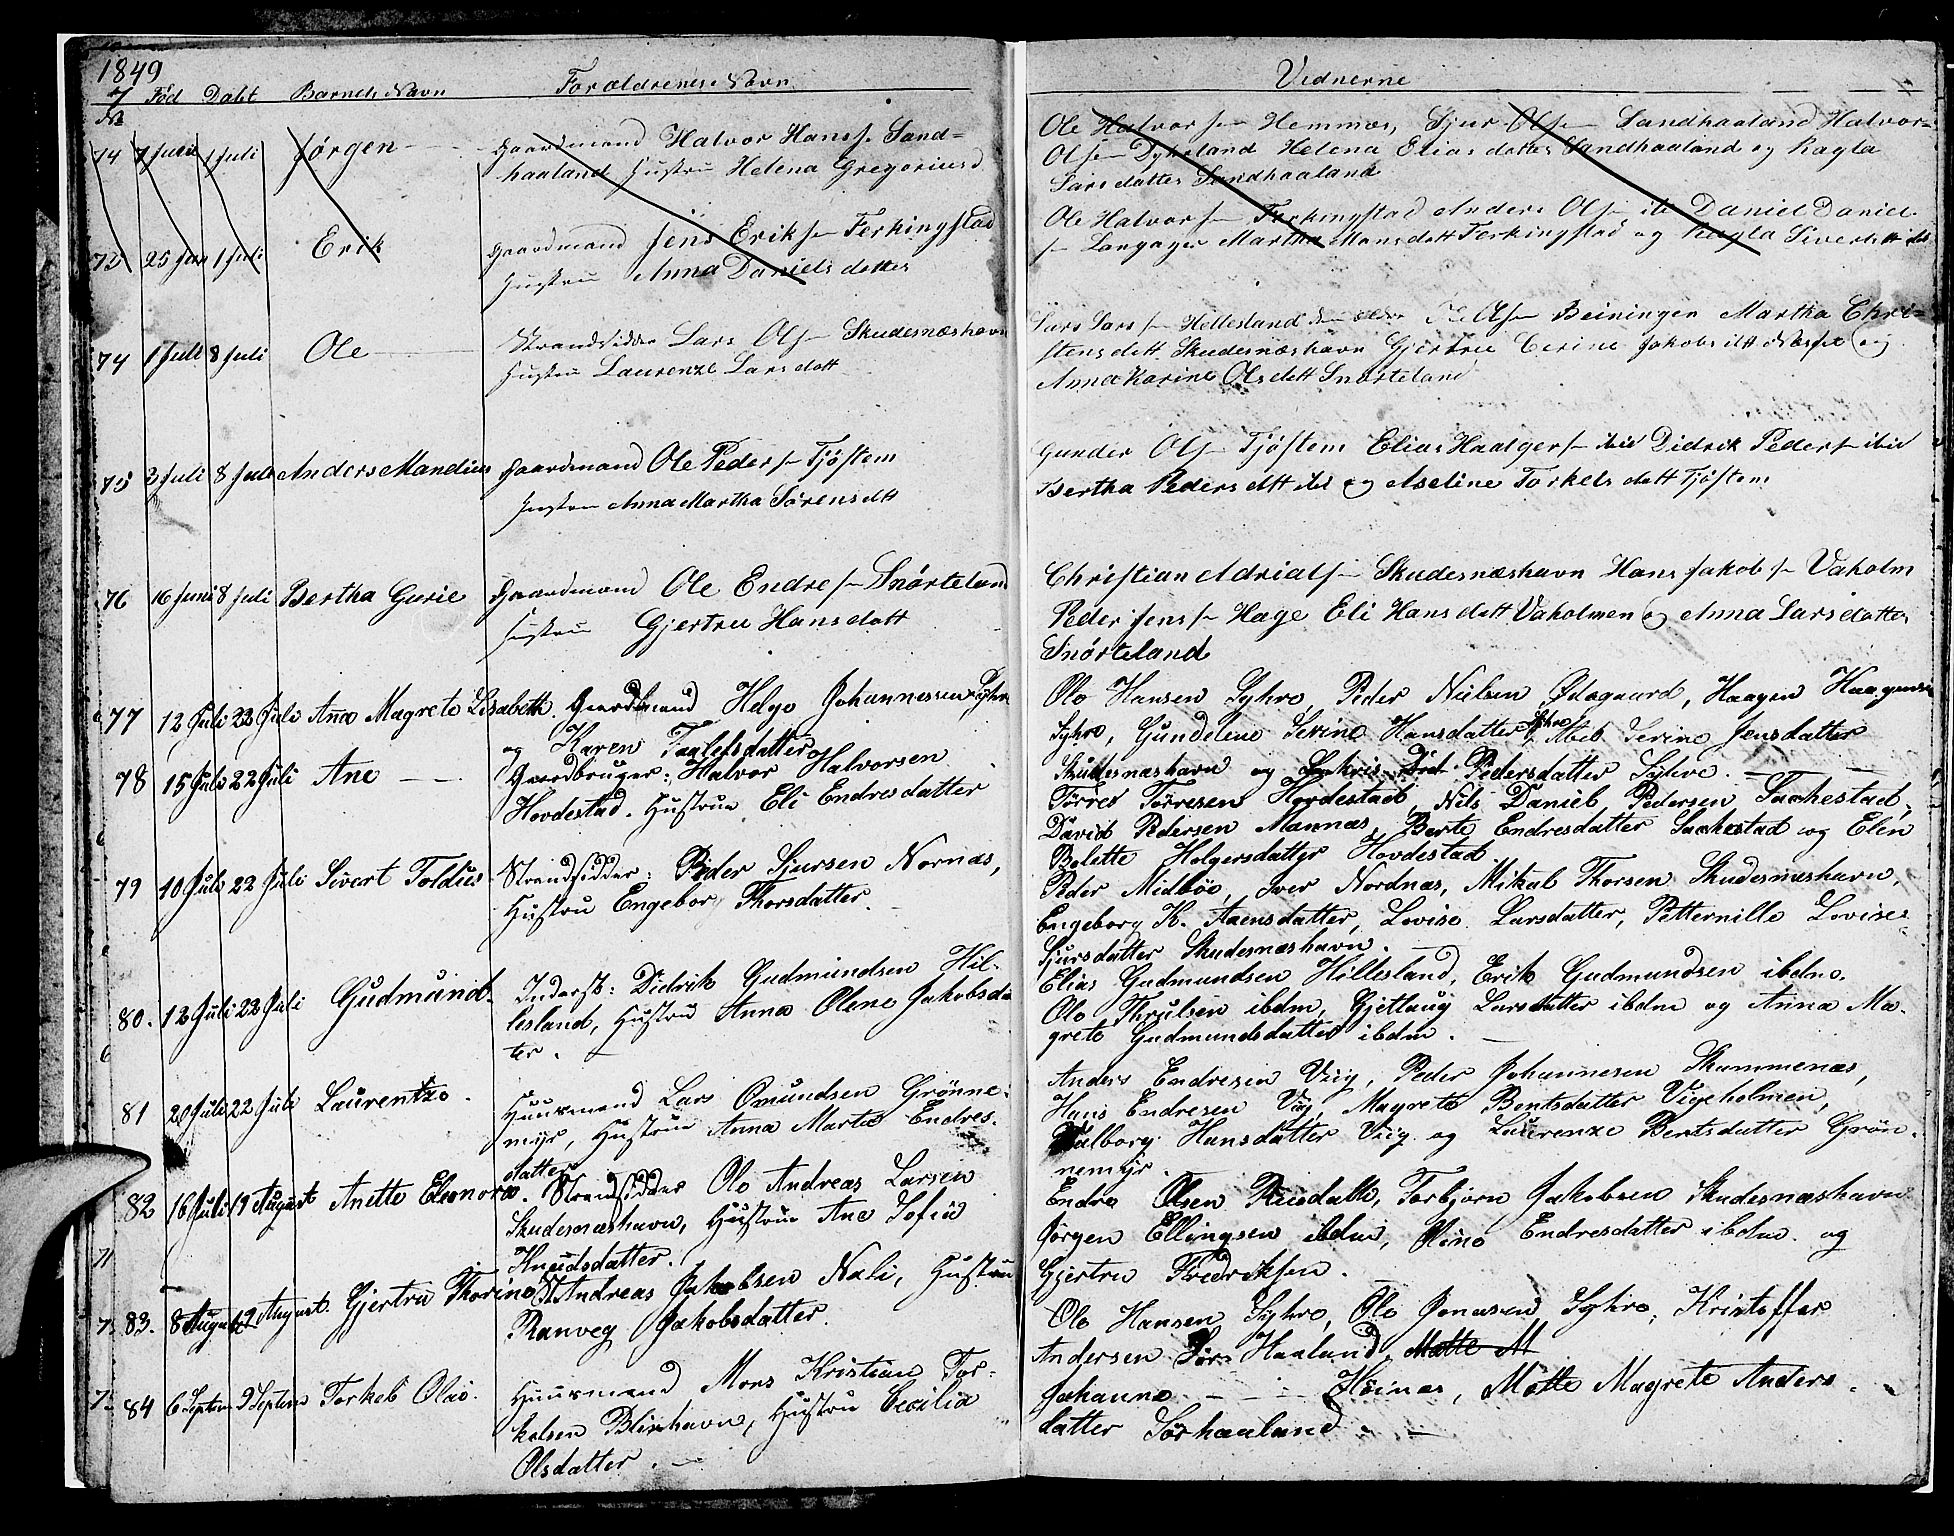 1849
7 Fød Døbt Barnets Navn Forældrenes Navn Vidnerne
74 7 Juni 1 Juli Jørgen Gaardmand Halvor Hans s. Sand=
haaland Hustru Helena Gregoriusd
Ole Halvor sen Hemnæs, Sjur Ols Sandhaaland Halvor=
Olsen Dykeland Helena Elias datter Sandhaaland og Ragla
Lars datter Sandhaaland
73 25 Jun 1 Juli Erik Gaardmand Jens Eriks Ferkingstad
Hustru Anna Daniels datter
Ole Halvorsen Ferkingstad Anders Ols Daniel Daniel
Langager Martha Hansdatt Ferkingstad og Ragla Sivertsdatt
74 1 Juli 8 Juli Ole Strandsidder Lars Ols Skudesnæshavn
Hustru Laurenze Lars datt
Lars Lars s Hellesland den Ols Beiningen Martha Chri=
stens datt Skudesnæshavn Gjertru Cerine Jakobs datt Næsse og
Anna Karine Ols datt Snørteland
75 3 Juli 8 Juli Anders Mandius Gaardmand Ole Peder s Tjøstem
Hustru Anna Martha Sørens dtt
Gunder Ols Tjøstem Elias Haagers ibid Didrik Peders ibid
Bertha Peders dtt ibd og Aseline Torkels datt Tjøstem
76 16 Juni 8 Juli Bertha Gurie Gaardmand Ole Endre s Snørteland
Hustru Gjertru Hans datt
Christian Adrials Skudesnæshavn Hans Jakobs Vaholm
Peder Jens s Hage Eli Hans datt Vaholmen og Anna Lars datter
Snørteland
77 12 Juli 22 Juli Ana Magrete Lisabeth. Gaardmand Helge Johannessen Syhre
og Karen Taalefsdatter
Ole Hansen Syhre, Peder Nielsen Ødegaard, Haagen Haagensen
Syhre, Gundelene Serine Hansdatter Syhre, Abel Serine Jensdatter
Skudesnæshavn og Pedersdatter Syhre.
78 15 Juli 22 Juli Ane Gaardbruger: Halvor Halvorsen
Hovdestad. Hustrue Eli Endresdatter
Tørres Tørresen Hovdestad, Nils Daniel Pedersen Sackestad,
David Pedersen Mannæs, Berte Endresdatter Sackestad og Elen
Bolette Holgersdatter Hovdestad.
79 10 Juli 22 Juli Sivert Toldius Strandsidder: Peder Sjursen Nornæs,
Hustru Engebor Thorsdatter.
Peder Midbøe, Iver Nordnæs, Mikal Thorsen Skudesnæshavn,
Engeborg K. Aaensdatter, Lovise Larsdatter, Petternille Lovise
Sjursdatter Skudesnæshavn.
80. 12 Juli 22 Juli Gudmund. Inderst: Didrik Gudmundsen Hil-
lesland, Hustru Anna Olene Jakobsda
ter.
Elias Gudmundsen Hillesland, Erik Gudmundsen ibdm.
Ole Thrulsen ibdm, Gjetlaug Larsdatter ibdm og Anna Ma-
grete Gudmundsdatter ibdm.
81 20 Juli 22 Juli Laurentze. Huusmand Lars Omundsen Grønne-
myr, Hustrue Anna Marta Endres-
datter
Anders Endresen Viig, Peder Johannesen Skummenæs,
Hans Endresen Viig, Magrete Bentsdatter Vigeholmen,
Valborg Hansdatter Viig og Laurenze Bentsdatter Grøn-
nemyr.
82 16 Juli 19 August Anette Eleonora. Strandsidder Ole Andreas Larsen
Skudesnæshavn, Hustrue Ane Sofia
Knudsdatter.
Endre Olsen Ruedalk, Torbjørn Jakobsen Skudesnæshavn
Jørgen Ellingsen ibdm, Stine Endresdatter ibdm. og
Gjertru Fredriksen.
83. 8 August 12 August. Gjertru Thorine St. Andreas Jakobsen Nali, Hustru
Ranveg Jakobsdatter.
Ole Hansen Syhre, Ole Jonasen Syhre, Kristoffer
Andersen Sør Haaland, Matte M
Johanne Høinæs, Matte Magrete Anders-
datter Sørhaaland.
84 6 Septem 9 Septem Torkel Olai. Huusmand Mons Kristian Tor-
kelsen Blixhavn, Hustru Cecilia
Olsdatter.